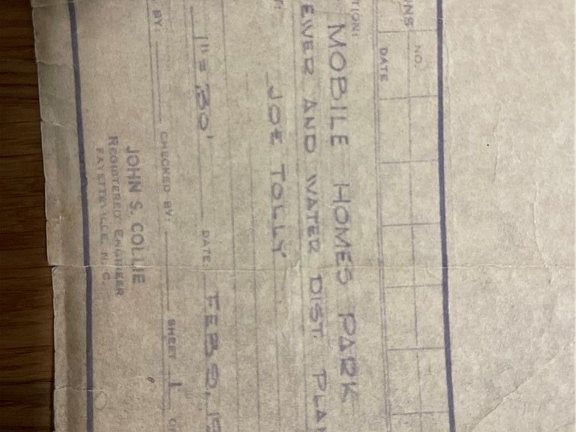 NO. DATE
MOBILE HOMES PARK
AND WATER DIST. PLAN
JOE TOLLY
1" = 30' DATE:
BY: CHECKED BY: SHEET 1
JOHN S. COLLIE
REGISTERED ENGINEER
FAYETTEVILLE, N.C.